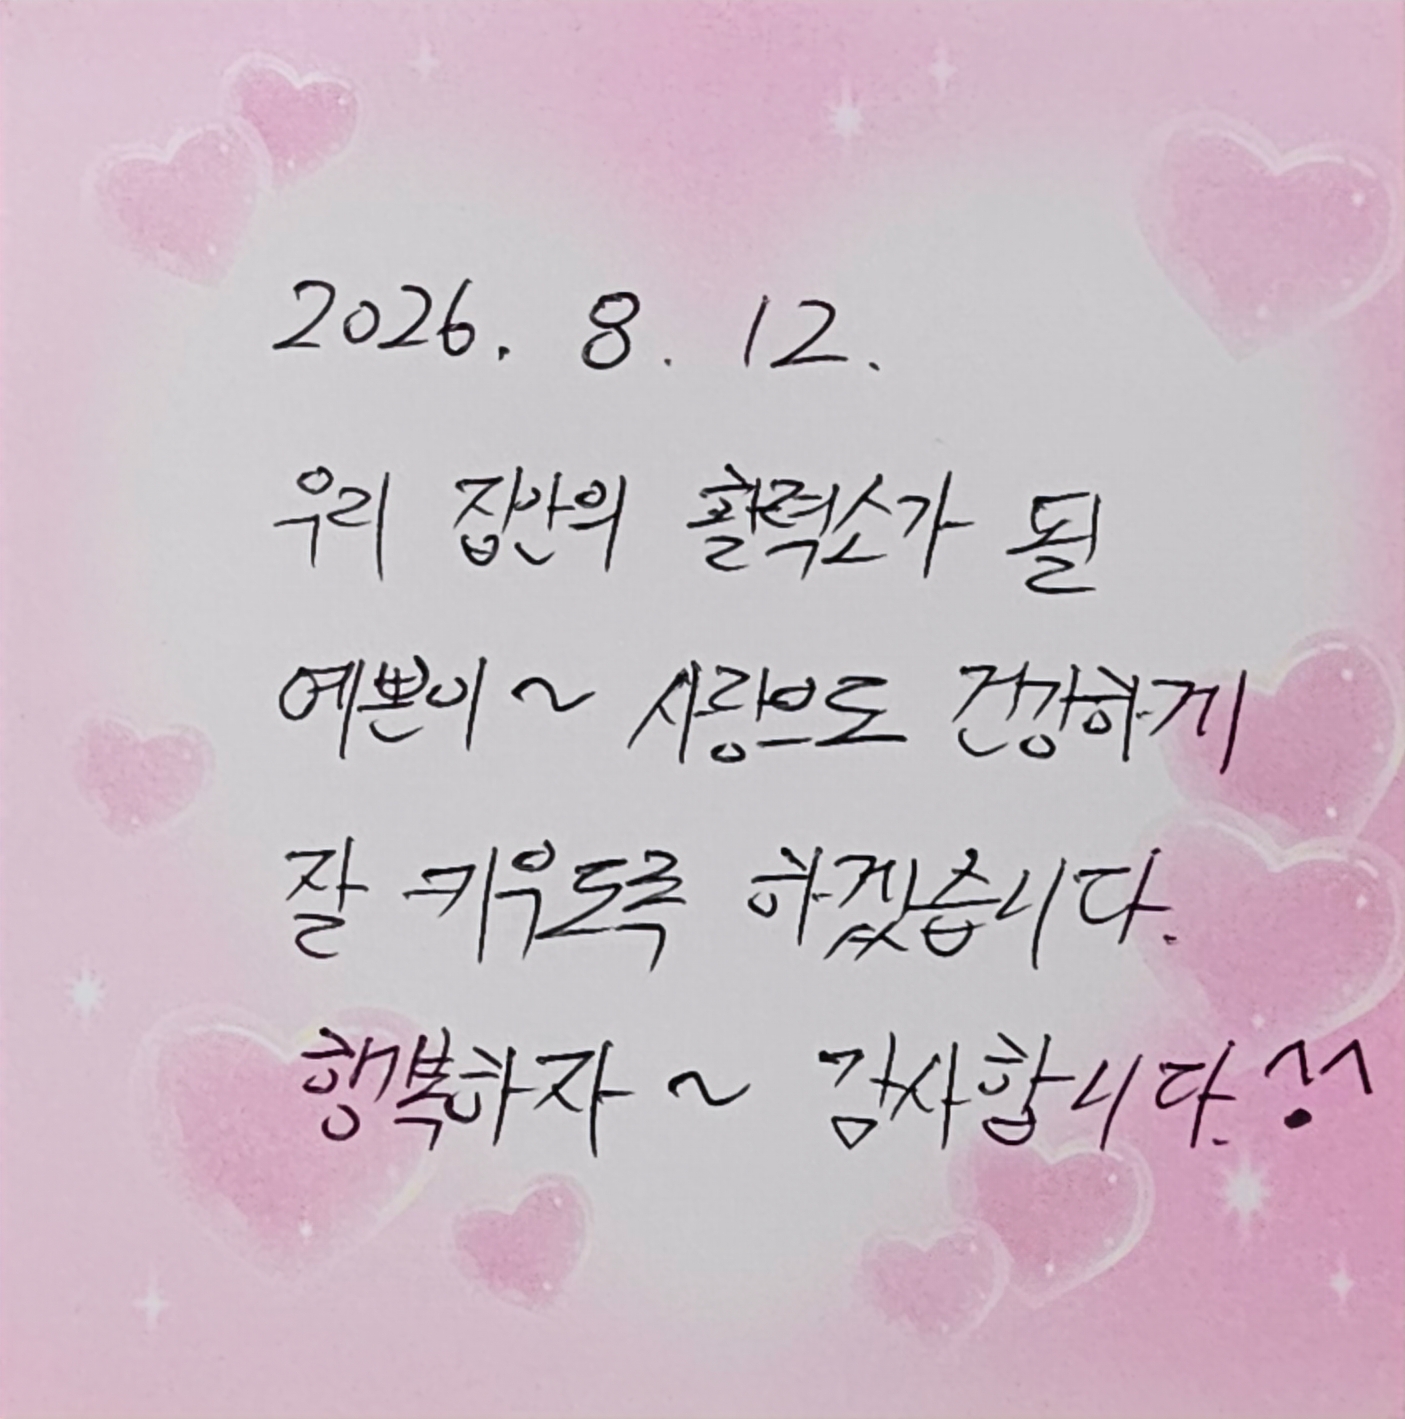 2026. 8. 12.
우리 집안의 활력소가 될
예쁜이~ 사랑으로 건강하게
잘 키우도록 하겠습니다.
행복하자~ 감사합니다. ^.^